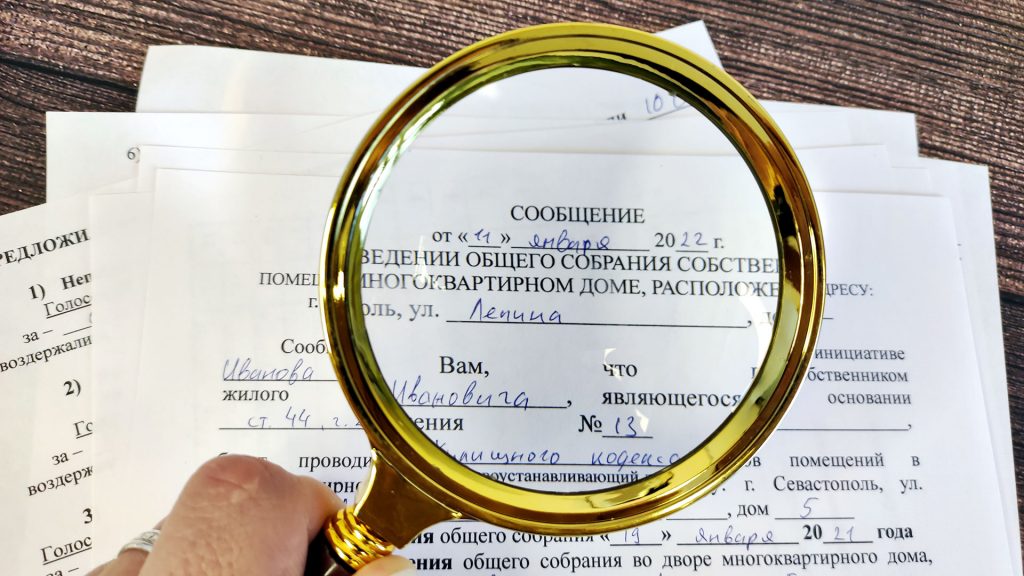 6)
СООБЩЕНИЕ
от «11» января 2022 г.
ВЕДЕНИИ ОБЩЕГО СОБРАНИЯ СОБСТВЕН
ПОМЕЩ МНОГОКВАРТИРНОМ ДОМЕ, РАСПОЛОЖЕ ДРЕСУ:
г. оль, ул. Ленина, до
Сооб Вам, что инициативе
Иванова Ивановича, являющегося бственником
жилого ения №13 основании
ст. 44, г.
проводи илищного кодекса ов помещений в
роустанавливающий г. Севастополь, ул.
, дом 5
ия общего собрания «19» января 2021 года
ения общего собрания во дворе многоквартирного дома,
РЕДЛОЖИ
1) Неп
Голос
за –
воздержали
2)
Го
за –
воздерж
3
Голос
за –